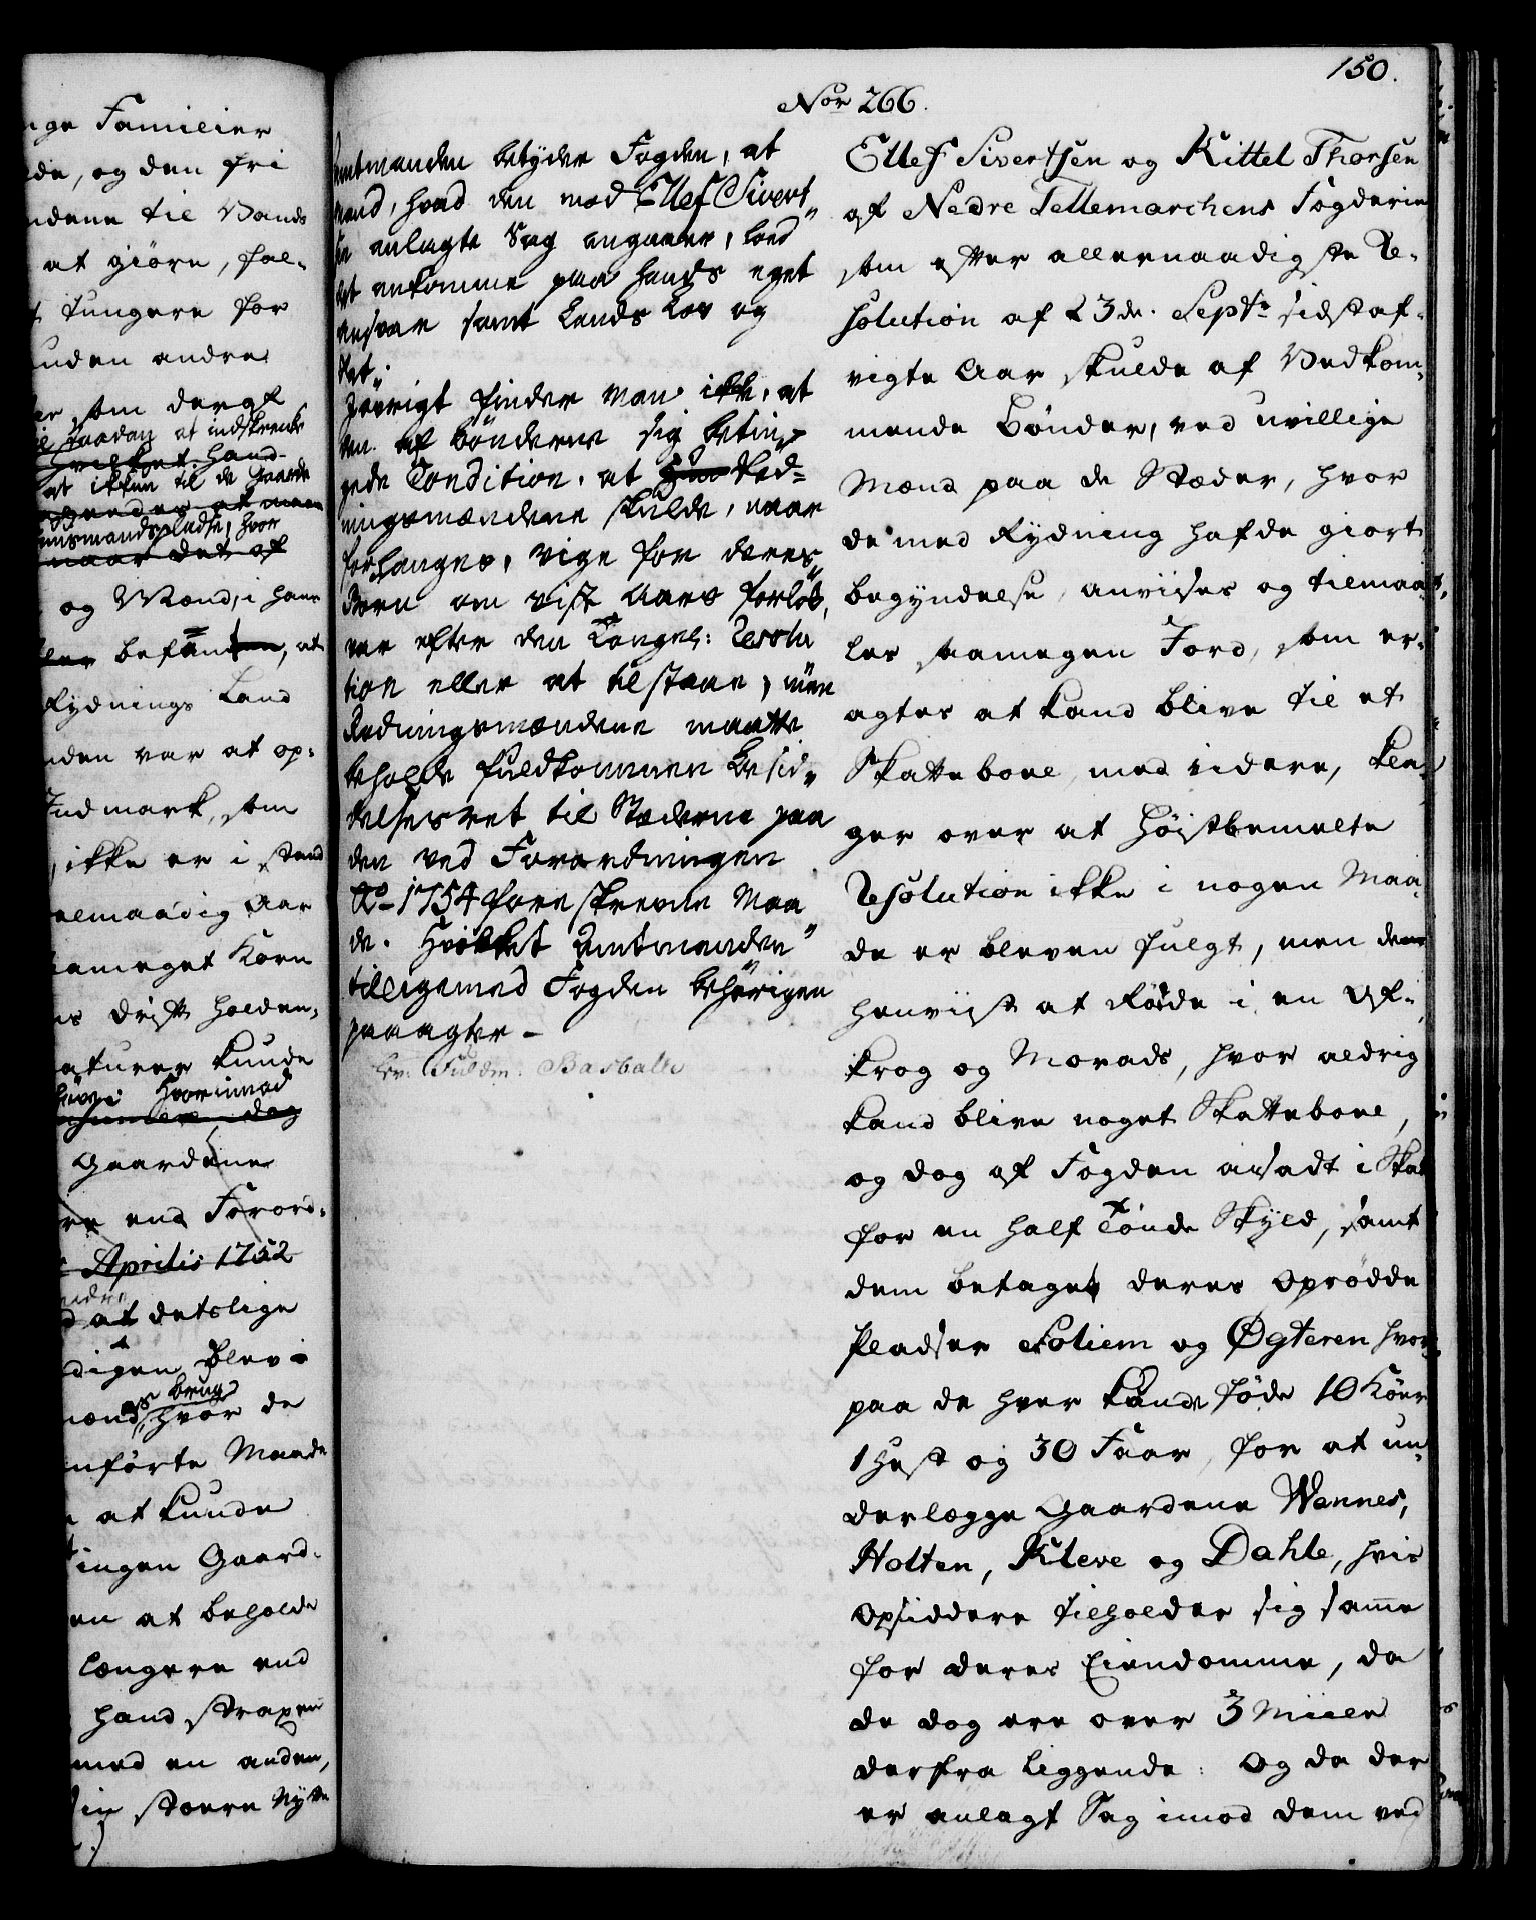 150.
Nor 266.
nge Familier
de, og den fri
ndene til Vands
at giøre, fal-
t tungere for
uden andre
er som dergl
saadan at indskrenke
hvilket hand
at ikkun til de Gaarde
naar det af
og Mænd, i hvor
befanten, at
Rydnings Land
nden var at op-
Indmark, som
, ikke er i stand
aar
saameget Korn
drift holden,
aturer kunde
hvorimod
dog
Gaardene
re end Forord-
Aprilis 1752
d at detslige
digen blev
brug
mænd, hvor de
nførte Maade
at kunde
ingen Gaard-
en at beholde
længere end
hand strax en
med en anden,
sin større Nytte
Amtmanden betyder Fogden, at
mand, hvad den mod Ellef Sivert-
sen anlagte Sag angaaer, lod
det ankomme paa hands eget
ansvar samt Lands Lov og
Ret.
Iøvrigt finder man ikke, at
den af bønderne sig betin-
gede Condition, at Rød-
ningsmændene skulde, naar
forlanges, vige for deres
Børn om vist Aars forløb,
var efter den Kongel: Resolu
tion eller at tilstaae, men
Rødningsmændene maatte
beholde fuldkommen Besid-
delsesret til Stæderne paa
den ved Forordningen
Ao 1754 foreskrevne Maa
de. Hvilket Amtmanden
tilligemed Fogden behørigen
paaagter -
Ellef Sivertsen og Kittel Thorsen
af Nedre Tellemarchens Fogderie
som efter allernaadigste Re-
solution af 23de. Septr sidstaf-
vigte Aar skulde af Vedkom-
mende Bønder, ved uvillige
Mænd paa de Stæder, hvor
de med Rydning hafde giort
begyndelse, anviises og tilmaa-
les saamegen Jord, som er-
agtes at kand blive til et
Skattebole, med videre, kla-
ger over at Høistbemelte
Resolution ikke i nogen Maa-
de er bleven fulgt, men dem
henviist at Røde i en Af-
krog og Morads, hvor aldrig
kand blive noget Skattebole,
og dog af Fogden ansadt i Skat
for en half Tønde Skyld, samt
dem betaget deres oprødde
Pladser Soliem og Øgteren hvor-
paa de hver kunde føde 10 Køer
1 Hest og 30 Faar, for at un-
derlægge Gaardene Wennes,
Holten, Kleve og Dahle, hvis
opsiddere tilholder sig samme
for deres Eiendomme, da
de dog ere over 3 Miile
derfra liggende: Og da der
er anlagt Sag imod dem ved